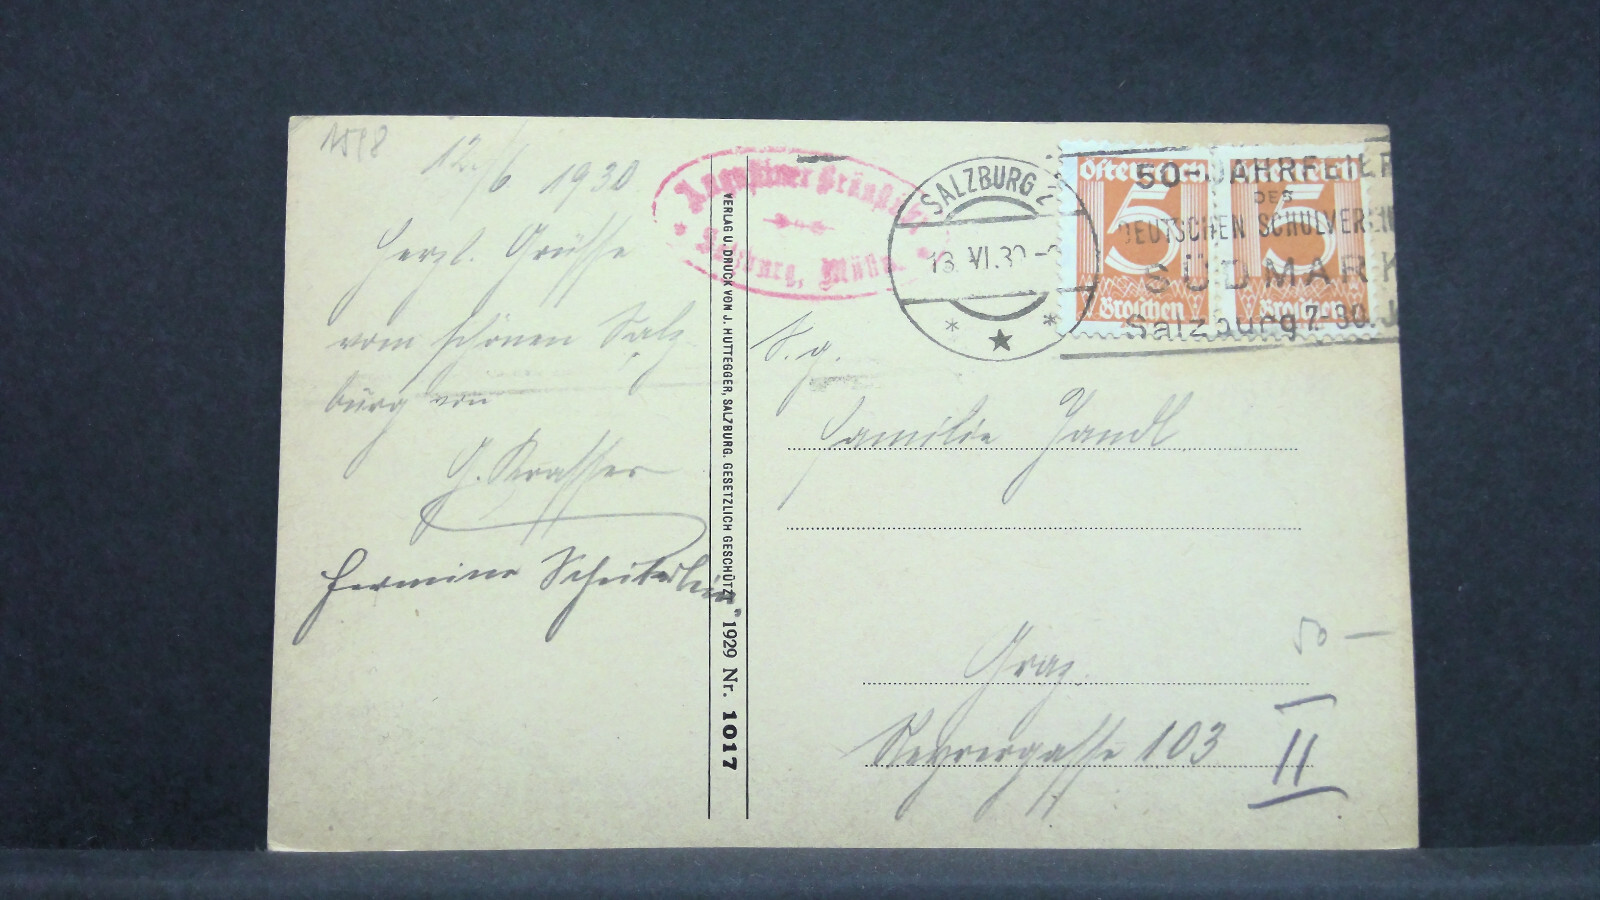 1598
12./6. 1930
Herzl. Grüsse
vom schönen Salz
burg von
G. Krasser
Hermine
VERLAG U. DRUCK VON J. HUTTEGGER, SALZBURG. GESETZLICH GESCHÜTZT
1929 Nr. 1017
Augustiner Bräustübl
Salzburg, Mülln
SALZBURG 2
13. VI. 30
Österreich
5
Groschen
Österreich
5
Groschen
50-JAHRFEIER
DES
DEUTSCHEN SCHULVEREIN
SÜDMARK
Salzburg 7-30. J
S. g.
Familie Jandl
Graz
103
50 —
II